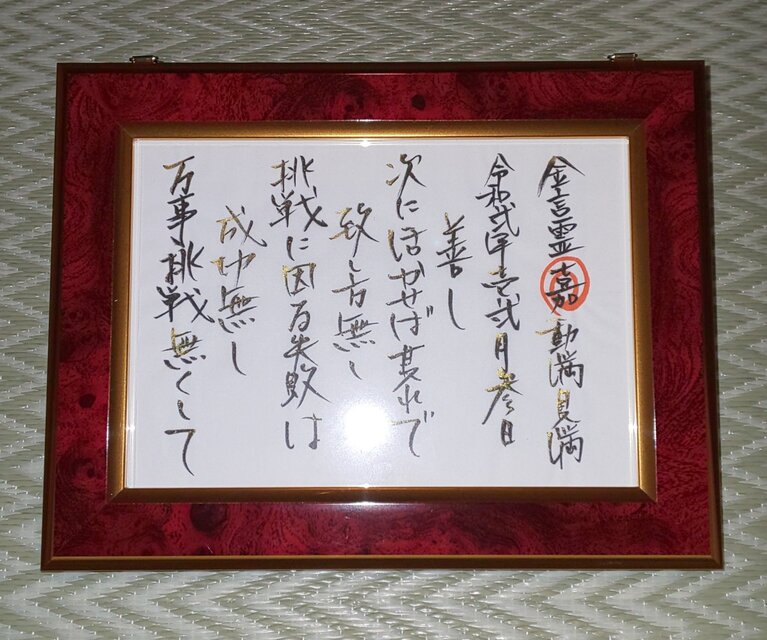 万事挑戦無くして
成功無し
挑戦に因る失敗は
致し方無し
次に活かせば其れで
善し
令和弐年壱弐月参日
金言霊嘉動満満